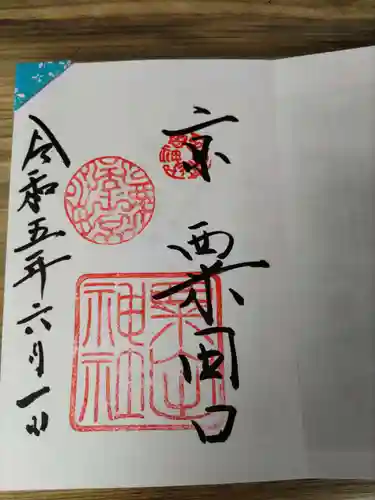 京 粟田口
令和五年六月一日
粟田
神社